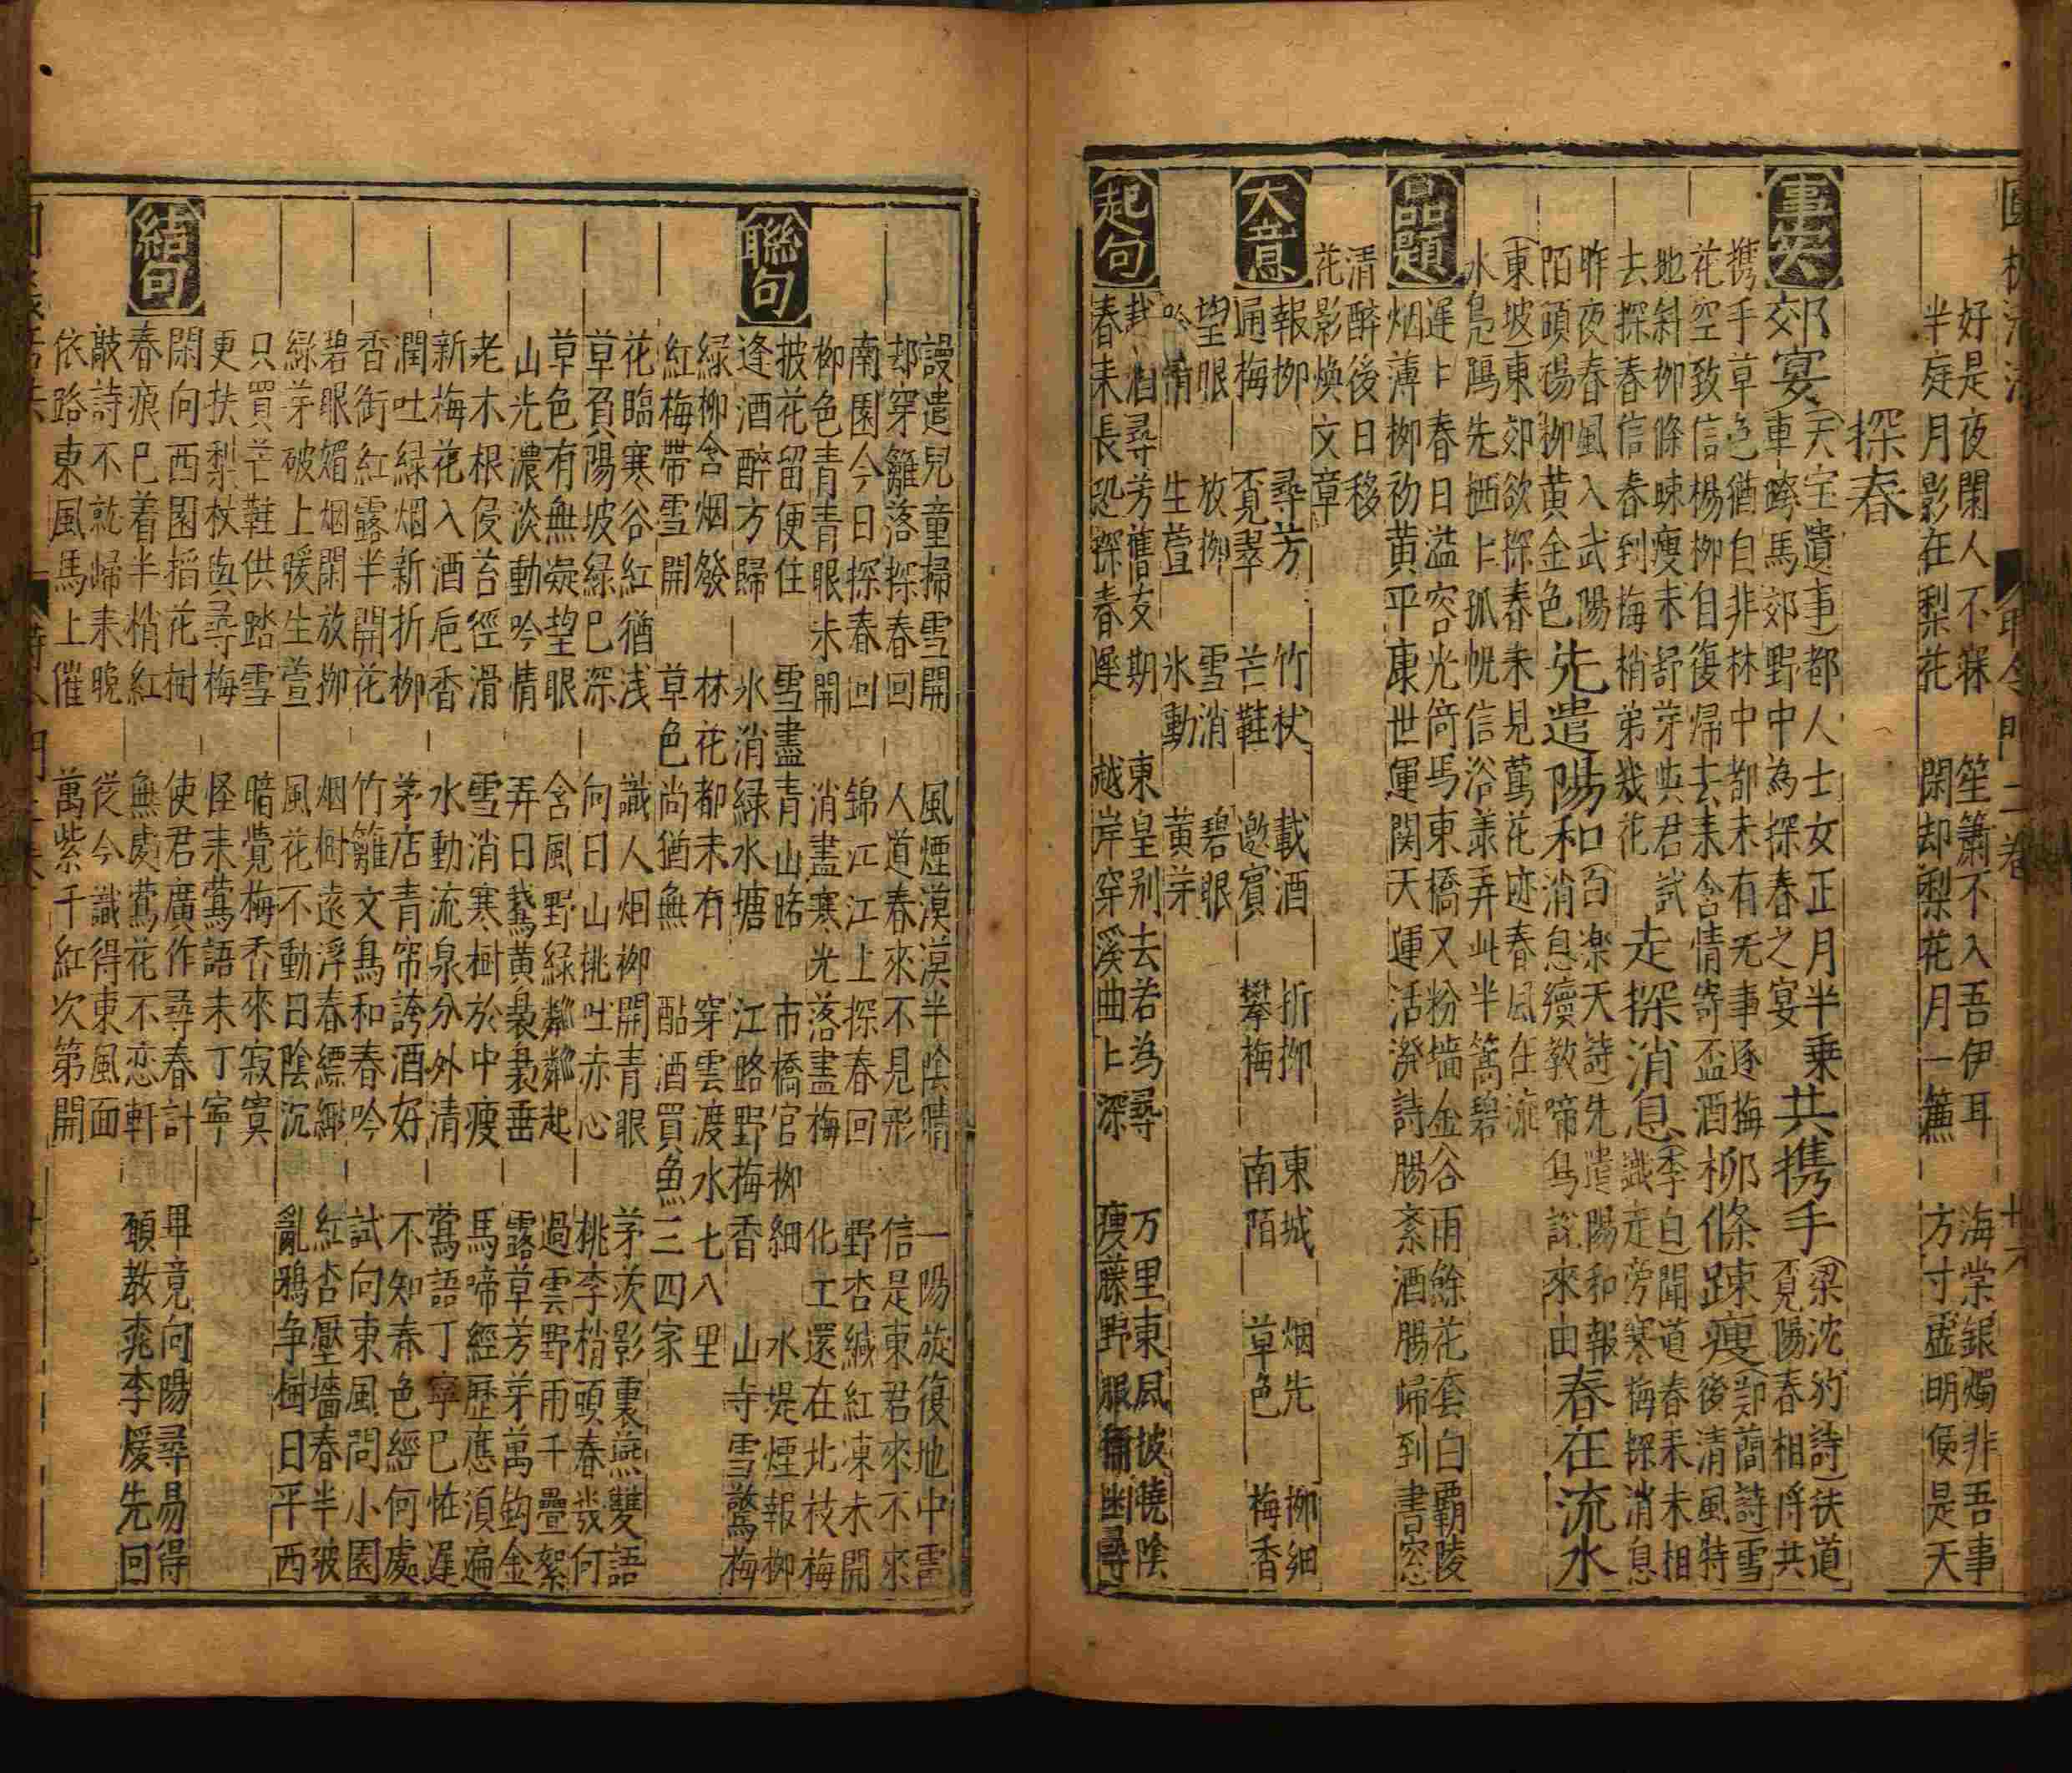 好是夜闌人不寐　笙簫不入吾伊耳　海棠銀燭非吾事
半庭月影在梨花　閑却梨花月一簾　方寸虛明便是天
探春
事类
郊宴(天宝遺事)都人士女正月半乘
車跨馬郊野中為探春之宴
共携手(梁沈約詩)扶道
覓陽春相將共
携手草色猶自非林中都未有无事逐梅
花空致信楊柳自復帰去来含情寄盃酒
柳條踈瘦(鄭蕳詩)雪
後清風特
地斜柳條踈瘦未舒芽與君試
去探春信春到梅梢弟幾花
走探消息(季白)聞道春未未相
識走旁寒梅探消息
昨夜春風入武陽
陌頭楊柳黄金色
先遣陽和(白楽天詩)先遣陽和報
消息續教啼鳥說來由
春在流水
(東坡)東郊欲探春未見鶯花迹春風在流
水鳧鴈先栖上孤㡌信浴羕弄此半篙碧
品題
遲上春日溢容光简馬東橋又粉墻金谷雨餘花套白覇陵
烟薄柳初黄平康世運関天運活潑詩腸紊酒腸歸到書窓
清醉後日移
花影煥文章
大意
報柳　尋芳　竹杖　載酒　折柳　東城　烟先　柳細
通梅　覔翠　芒鞋　邀賓　攀梅　南陌　草色　梅香
望眼　放柳　雪消　碧眼
吟情　生萱　氷動　黄芽
起句
尋芳舊友期　東皇别去若為尋　万里東風披曉陰
春未長恐探春遲　越岸穿溪曲上深　瘦藤野服幽尋
謾遣兒童掃雪開　風煙漠漠半陰晴　一陽旋復地中雷
却穿籬落探春回　人道春來不見形　信是東君來不來
南園今日探春回　錦江江上探春回　野杏緘紅凍未開
柳色青青眼未開　消盡寒光落盡梅　化工還在北枝梅
聯句
披花留便住　雪盡青山路　市橋官柳細　水堤煙報柳
逢酒醉方歸　氷消緑水塘　江路野梅香　山寺雪驚梅
緑柳含烟發　林花都未有　穿雲渡水七八里
紅梅帶雪開　草色尚猶無　酤酒買魚三四家
花臨寒谷紅猶浅　識人烟柳開青眼　茅茨影裏燕雙語
草負陽坡緑已深　向日山桃吐赤心　桃李梢頭春幾何
草色有無凝望眼　含風野緑粼粼起　過雲野雨千疊絮
山光濃淡動吟情　弄日鵞黄裊裊垂　露草芳芽萬鈎金
老木根侵苔徑滑　雪消寒樹於中瘦　馬啼經歷應湏遍
新梅花入酒巵香　水動流泉分外清　鶯語丁寧已恠遲
潤吐緑烟新折柳　茅店青帘誇酒好　不知春色經何處
香銜紅露半開花　竹籬文鳥和春吟　試向東風問小園
碧眼媚烟閑放柳　烟樹遠浮春縹緲　紅杏壓墻春半破
緑芽破上暖生萱　風花不動日陰沉　亂鴉争樹日平西
只買芒鞋供踏雪　暗覺梅香來寂寞
更扶梨杖與尋梅　怪来鶯語未丁寧
結句
閑向西園搯花樹　使君廣作尋春計　畢竟向陽尋易得
春痕已着半梢紅　無處鶯花不恋軒　頋教桃李煖先回
敲詩不就歸来晚　従今識得東風面
依路東風馬上催　萬紫千紅次第開